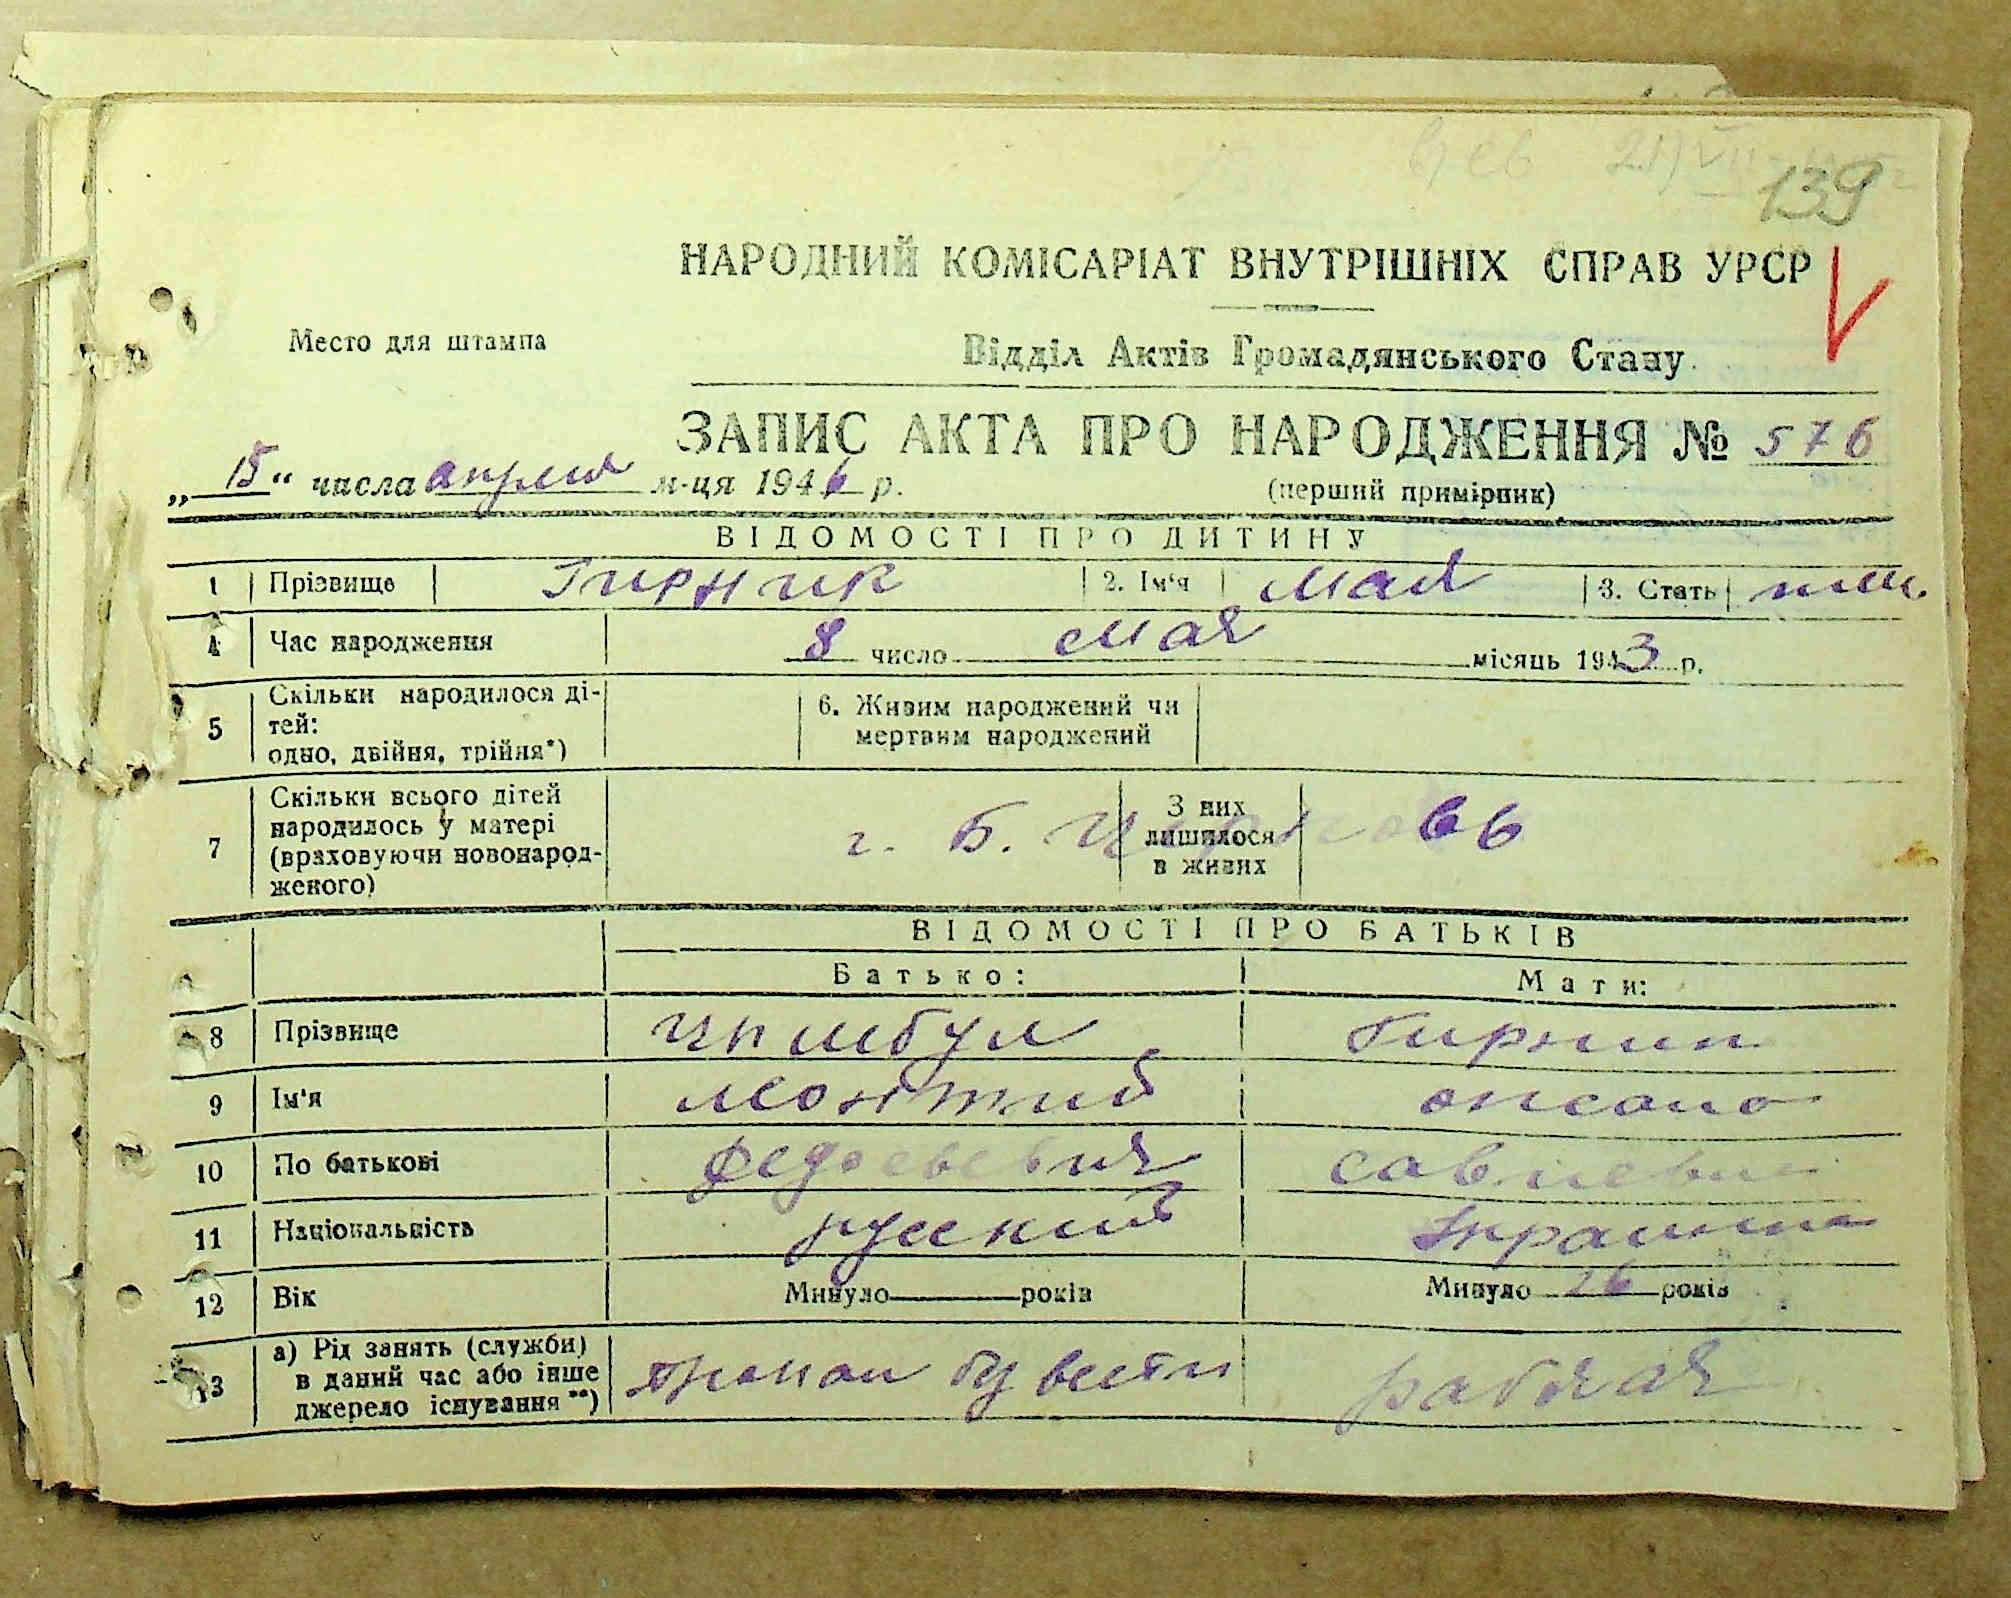 139
НАРОДНИЙ КОМІСАРІАТ ВНУТРІШНІХ СПРАВ УРСР
Место для штампа
Відділ Актів Громадянського Стану
ЗАПИС АКТА ПРО НАРОДЖЕННЯ № 576
„15“ числа апреля м-ця 1946 р.
(перший примірник)
ВІДОМОСТІ ПРО ДИТИНУ
1 Прізвище Гирник 2. Ім‘я Мая 3. Стать
4 Час народження 8 число мая місяць 1943 р.
5 Скільки народилося ді-
тей:
одно, двійня, трійня*)
6. Живим народжений чи
мертвим народжений
7 Скільки всього дітей
народилось у матері
(враховуючи новонарод-
женого)
г. Б. Церковь
З них
лишилося
в живих
ВІДОМОСТІ ПРО БАТЬКІВ
Батько: Мати:
8 Прізвище Цимбул Гирник
9 Ім‘я Оксана
10 По батькові
11 Національність русский Украинка
12 Вік Минуло року Минуло 26 років
13 а) Рід занять (служби)
в даний час або інше
джерело існування **)
пропал бу вести рабочая